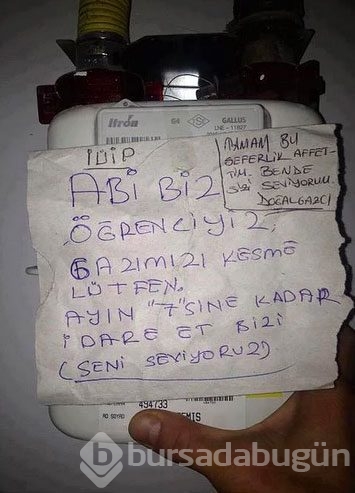 Itron
G4
GALLUS
İDİP
ABİ BİZ
ÖĞRENCİYİZ
GAZIMIZI KESME
LÜTFEN.
AYIN "7"SİNE KADAR
İDARE ET BİZİ
(SENİ SEVİYORUZ)
TAMAM BU
SEFERLİK AFFET-
TİM. BENDE
SİZİ SEVİYORUM
DOĞALGAZCI
494733
AD SOYAD
bursadabugün